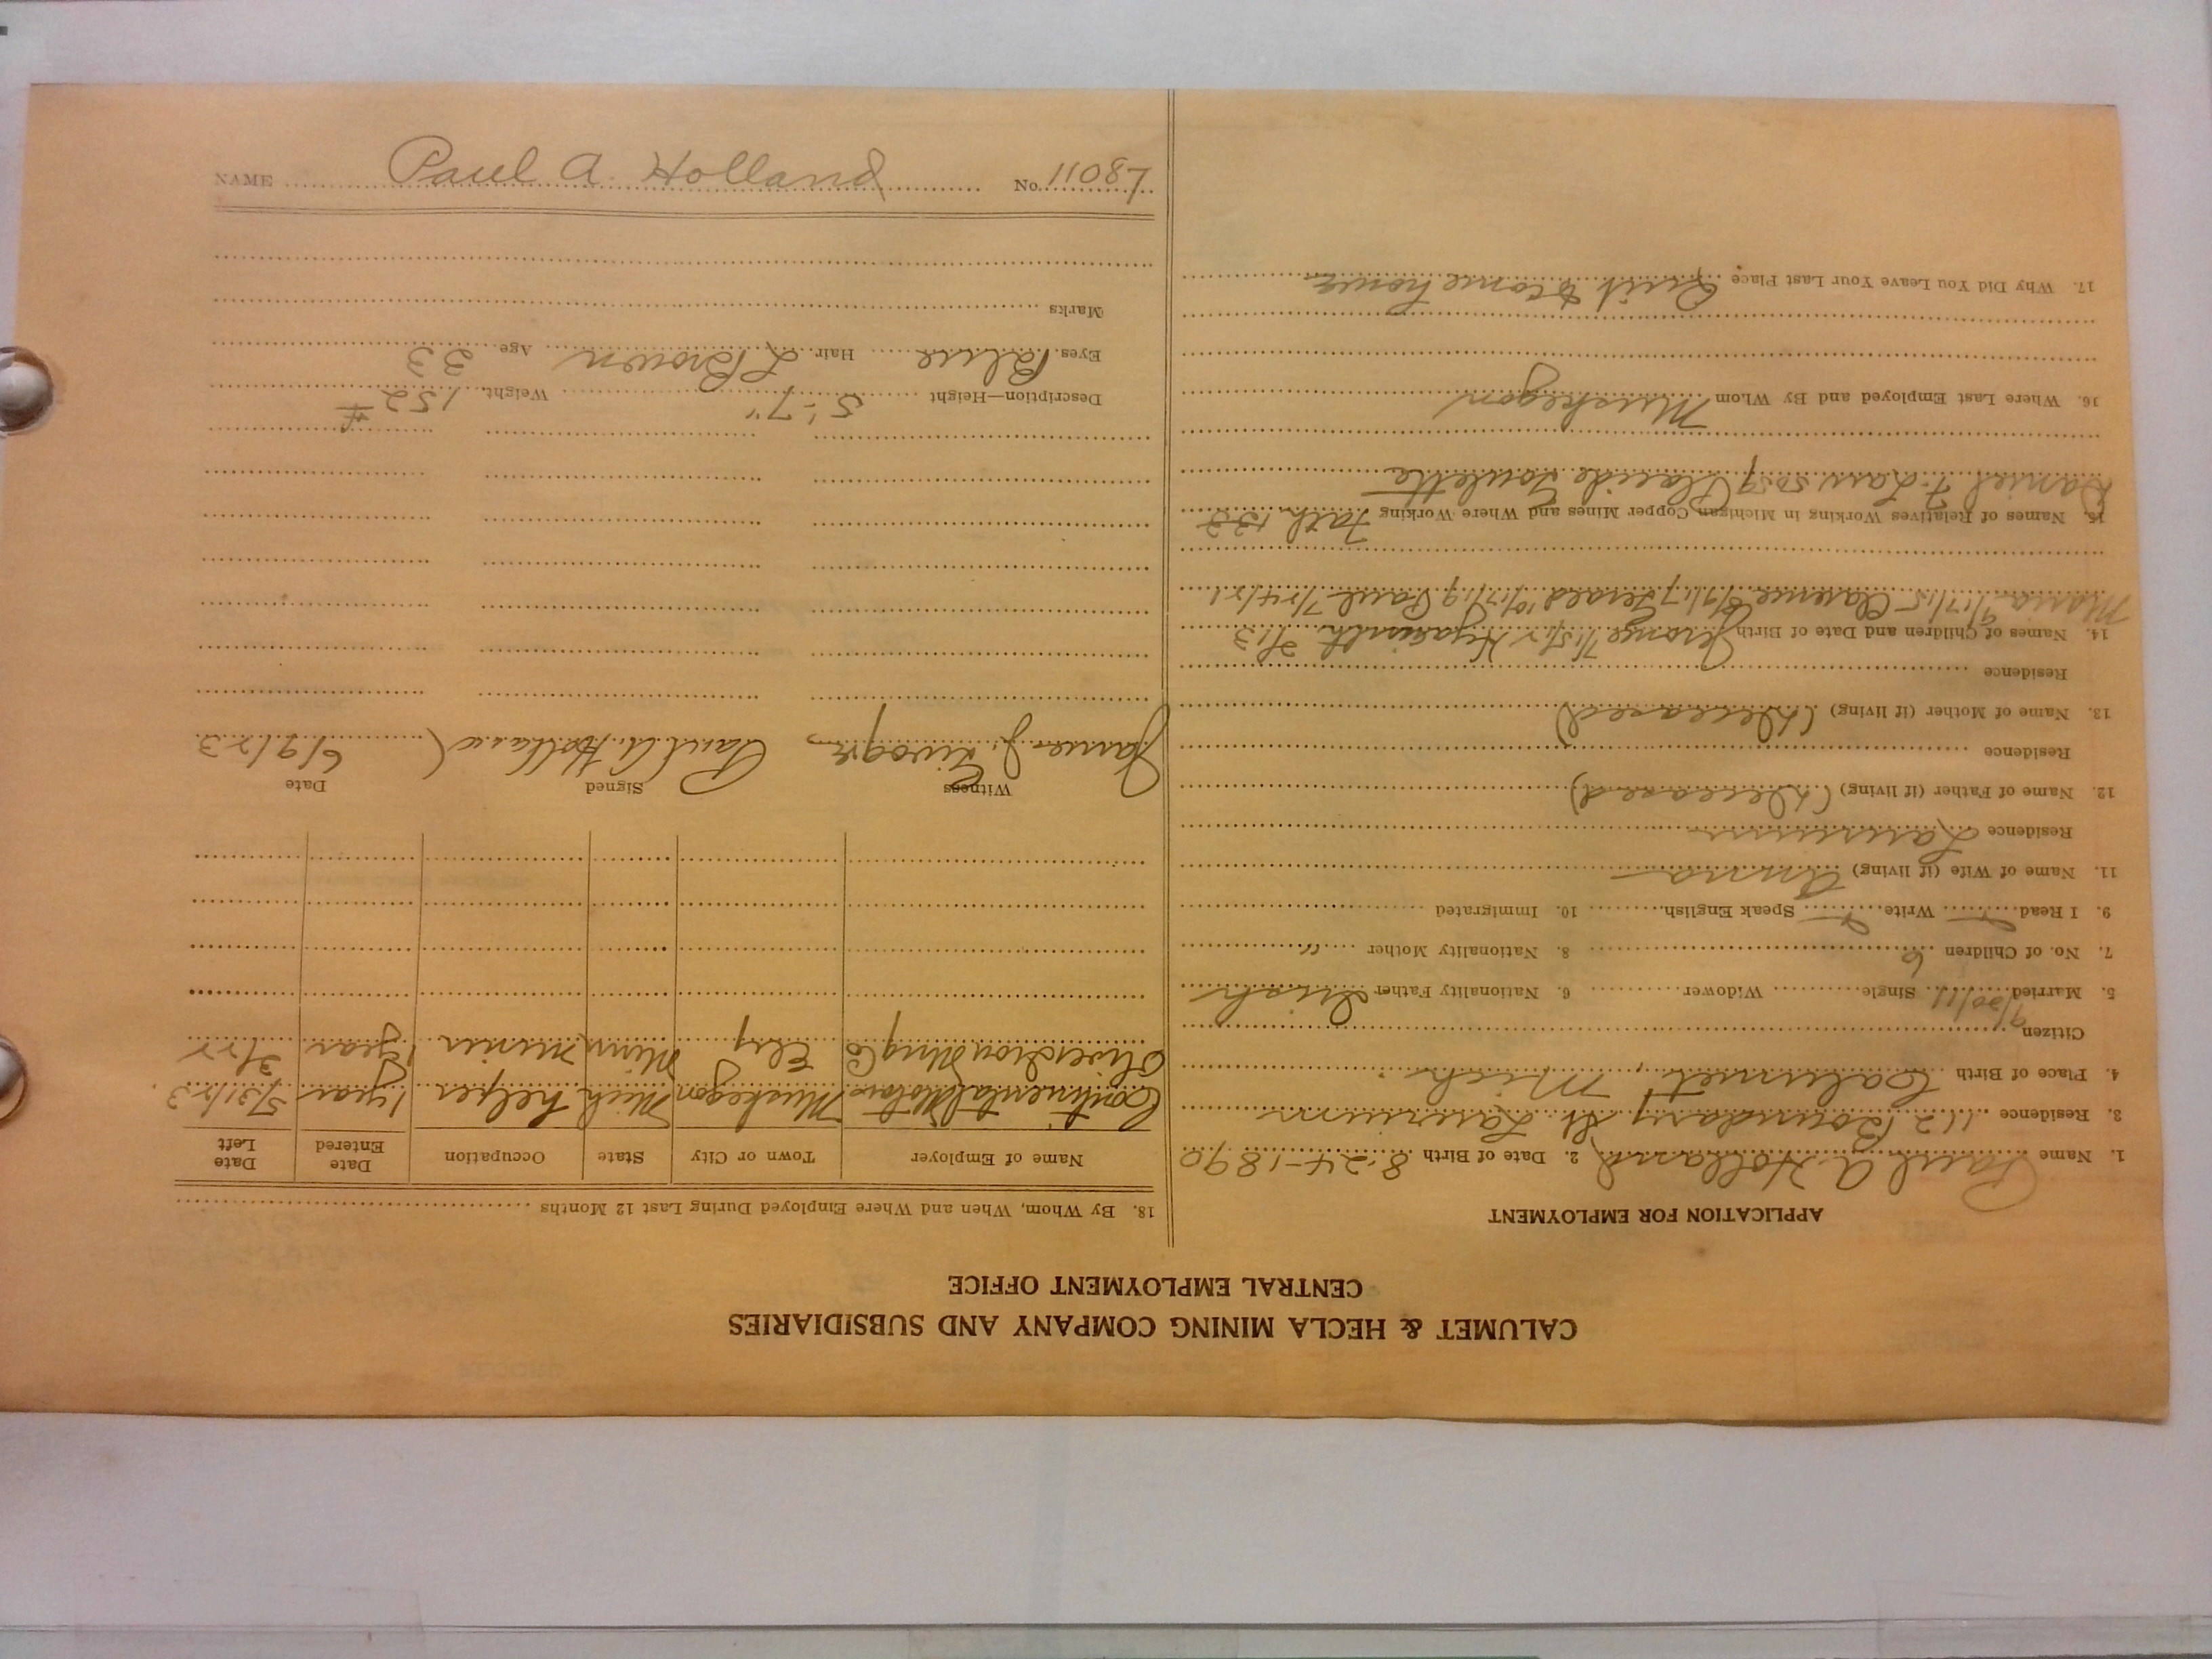 CALUMET & HECLA MINING COMPANY AND SUBSIDIARIES
CENTRAL EMPLOYMENT OFFICE
APPLICATION FOR EMPLOYMENT
1. Name Paul A Holland 2. Date of Birth 8-24-1890
3. Residence 112 Boundary St. Laurium
4. Place of Birth Calumet, Mich
Citizen
5. Married 9/20/11 Single Widower 6. Nationality Father Irish
7. No. of Children 6 8. Nationality Mother "
9. I Read Write Speak English 10. Immigrated
11. Name of Wife (if living) Anna
Residence Laurium
12. Name of Father (if living) (Deceased)
Residence
13. Name of Mother (if living) (Deceased)
Residence
14. Names of Children and Date of Birth Jerome 7/15/12 Hyacinth 2/13
Maria 9/17/15 Clarence 6/9/17 Gerald 10/17/19 Paul 7/24/21
15. Names of Relatives Working in Michigan Copper Mines and Where Working
Daniel F. Law 5059 Placide
16. Where Last Employed and By Whom Muskegon
17. Why Did You Leave Your Last Place Quit to come home
18. By Whom, When and Where Employed During Last 12 Months
Name of Employer Town or City State Occupation Date Entered Date Left
Continental Motors Muskegon Mich helper 1 year 5/31/23
Oliver Iron Mng Co Ely Minn miner 1 year 3/22
Witness Signed Date
James J. Paul A. Holland 6/9/23
Description—Height 5'-7" Weight 152#
Eyes Blue Hair L Brown Age 33
Marks
NAME Paul A. Holland No. 11087